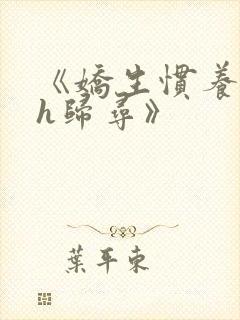 《嬌生慣養
h歸尋》
葉平東